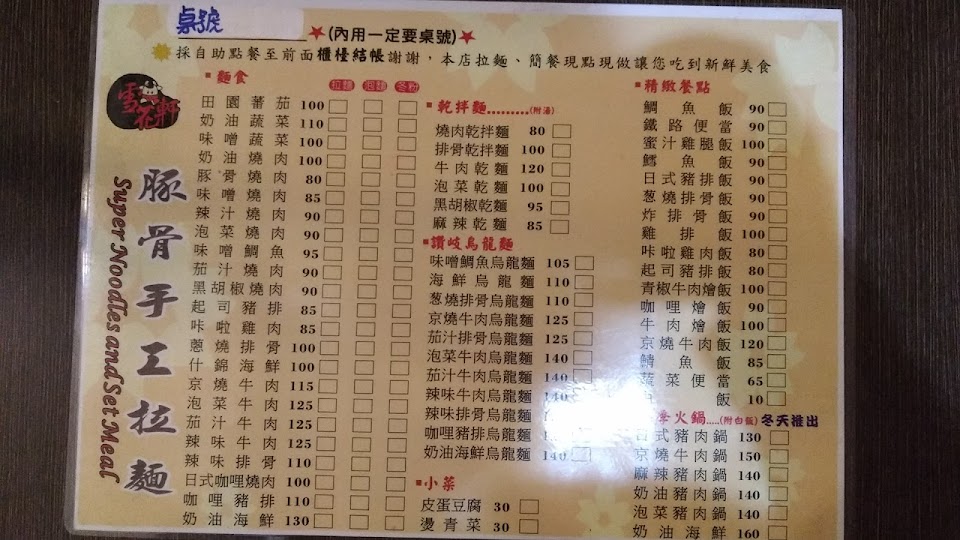 桌號
★(內用一定要桌號)★
採自助點餐至前面櫃檯結帳謝謝，本店拉麵、簡餐現點現做讓您吃到新鮮美食
雪花軒
豚骨手工拉麵
Super Noodles and Set Meal
麵食 拉麵 泡麵 冬粉
田園蕃茄 100
奶油蔬菜 110
味噌蔬菜 100
奶油燒肉 100
豚骨燒肉 80
味噌燒肉 85
辣汁燒肉 90
泡菜燒肉 90
味噌鯛魚 95
茄汁燒肉 90
黑胡椒燒肉 90
起司豬排 85
咔啦雞肉 85
蔥燒排骨 100
什錦海鮮 100
京燒牛肉 115
泡菜牛肉 125
茄汁牛肉 125
辣味牛肉 125
辣味排骨 110
日式咖哩燒肉 100
咖哩豬排 110
奶油海鮮 130
乾拌麵.........(附湯)
燒肉乾拌麵 80
排骨乾拌麵 100
牛肉乾麵 120
泡菜乾麵 100
黑胡椒乾麵 95
麻辣乾麵 85
讚岐烏龍麵
味噌鯛魚烏龍麵 105
海鮮烏龍麵 110
蔥燒排骨烏龍麵 110
京燒牛肉烏龍麵 125
茄汁排骨烏龍麵 125
泡菜牛肉烏龍麵 140
茄汁牛肉烏龍麵 140
辣味牛肉烏龍麵
辣味排骨烏龍麵
咖哩豬排烏龍麵
奶油海鮮烏龍麵 140
小菜
皮蛋豆腐 30
燙青菜 30
精緻餐點
鯛魚飯 90
鐵路便當 90
蜜汁雞腿飯 100
鱈魚飯 90
日式豬排飯 90
蔥燒排骨飯 90
炸排骨飯 90
雞排飯 90
咔啦雞肉飯 80
起司豬排飯 80
青椒牛肉燴飯 100
咖哩燴飯 90
牛肉燴飯 100
京燒牛肉飯 120
鯖魚飯 85
蔬菜便當 65
飯 10
季火鍋.....(附白飯) 冬天推出
日式豬肉鍋 130
京燒牛肉鍋 150
麻辣豬肉鍋 140
奶油豬肉鍋 140
泡菜豬肉鍋 140
奶油海鮮 160